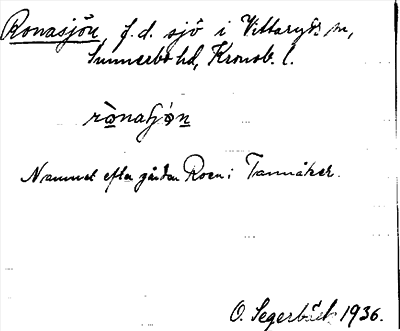 Ronasjön, f.d. sjö i Vittaryds sn,
Sunnerbo hd, Kronob. l.
rònasjö́n
Namnet efter gården Roen i Tannåker.
O. Segerbäck 1936.